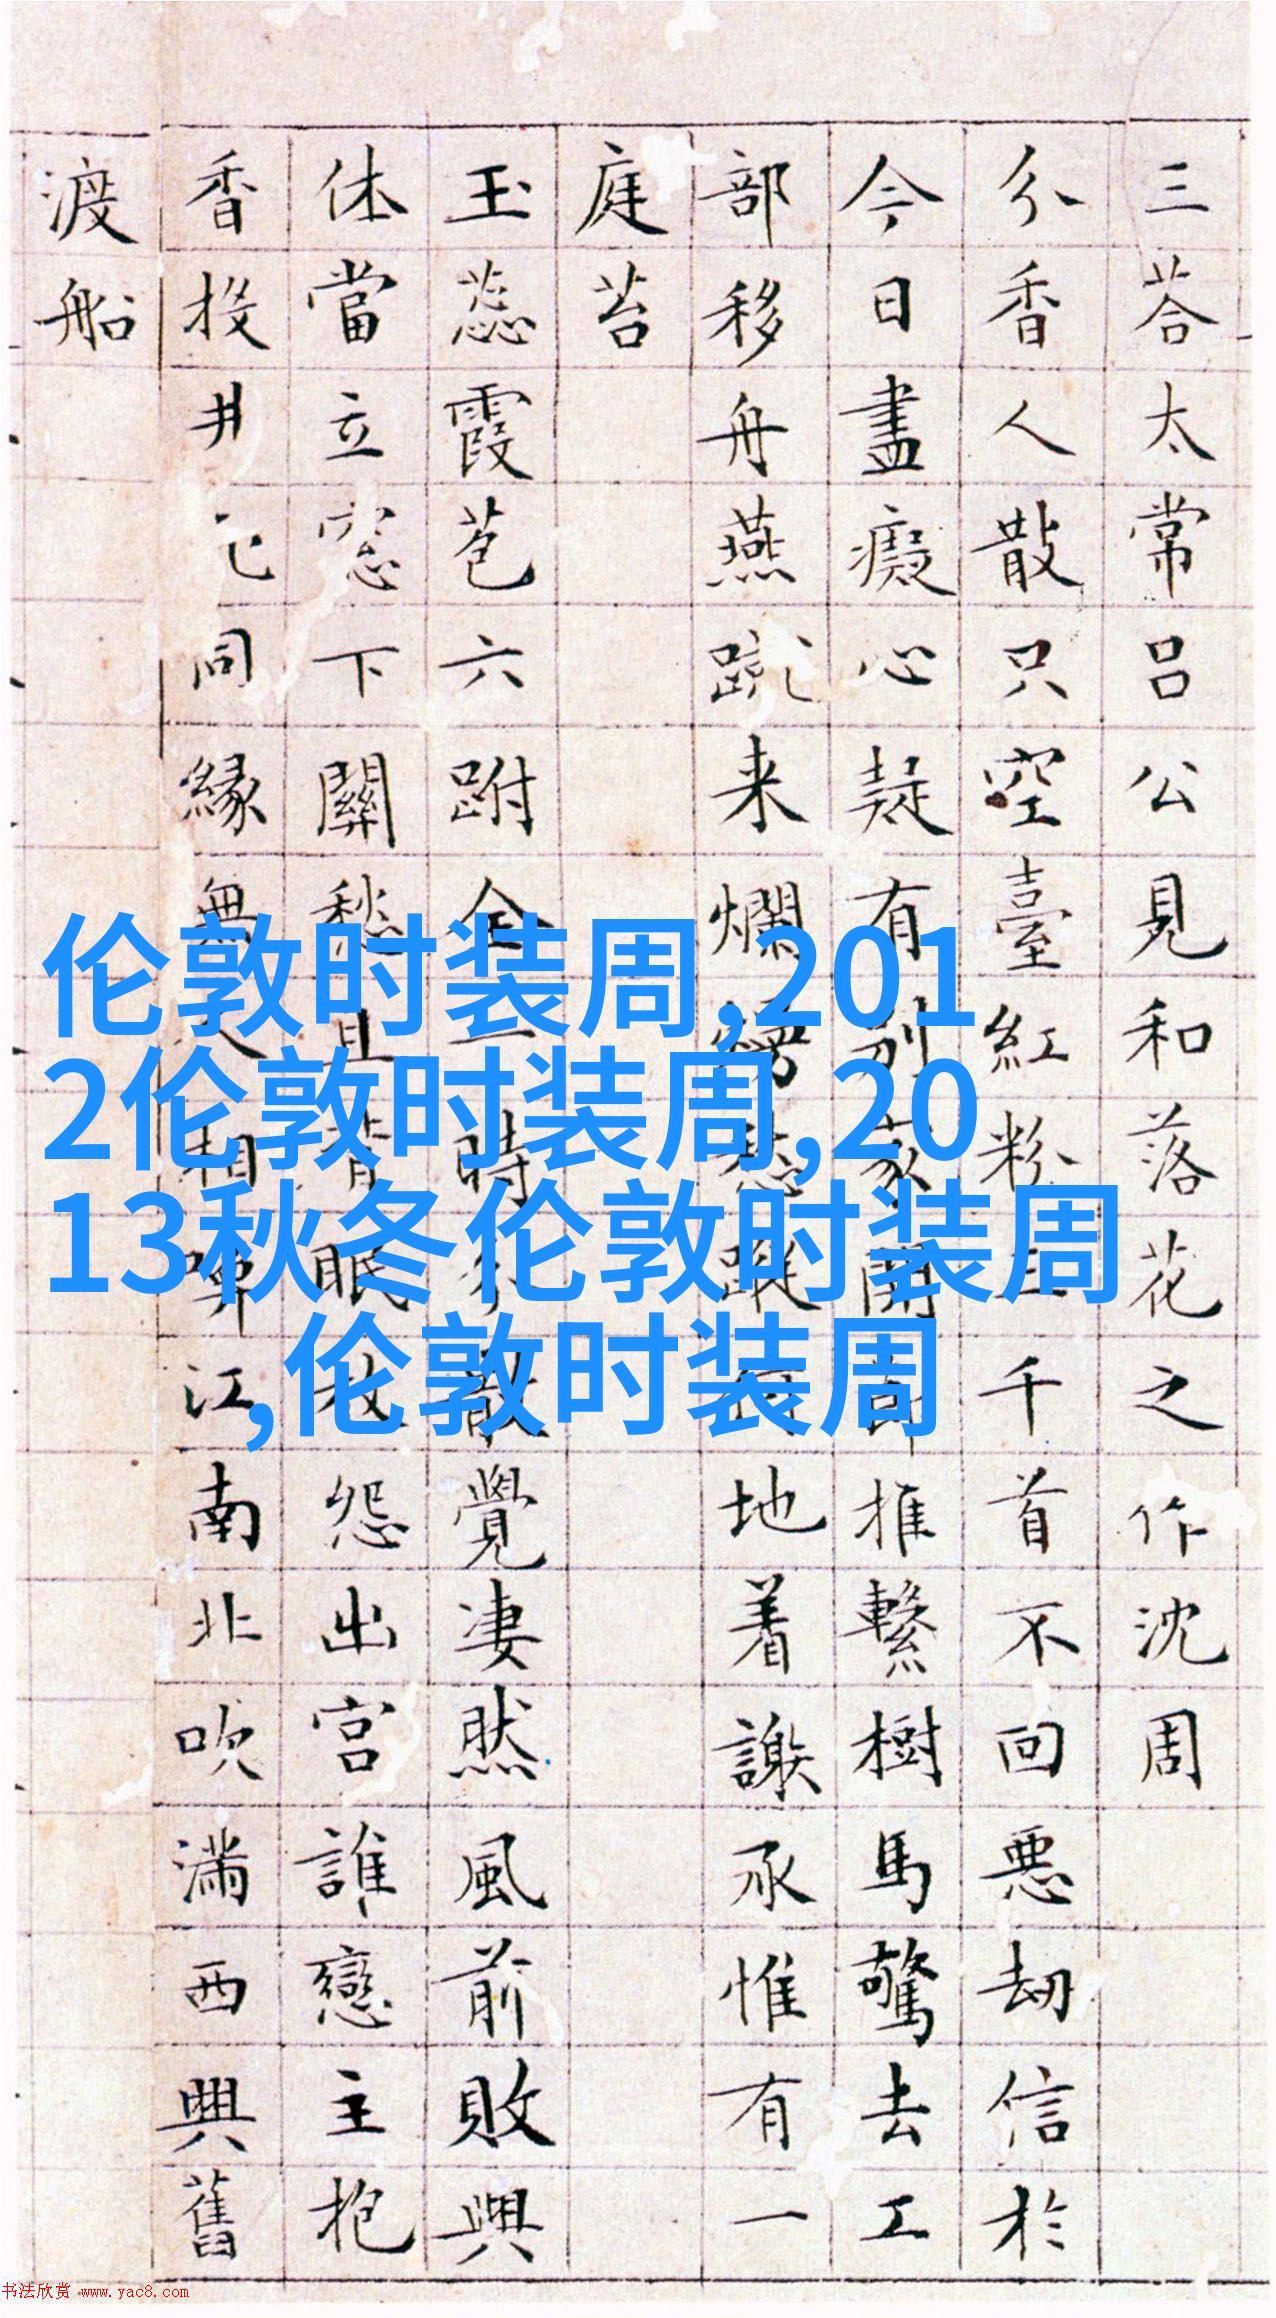 三荅太常吕公見和落花之作沈周
分香人散只空臺紅粉三千首不回惡劫信於
今日盡癡心疑有别家開推繫樹馬驚去工
部移舟燕蹴来爛愁蹤地着謝承惟有一
庭苔
玉蕊霞苞六跗全一時分散覺凄然風前敗興
休當立窓下關愁且背眠放怨出宫誰戀主抱
香投井同緣無人相喚江南北吹滿西興舊
渡船
伦敦时装周,201
2伦敦时装周,20
13秋冬伦敦时装周
,伦敦时装周
书法欣赏 www.yac8.com